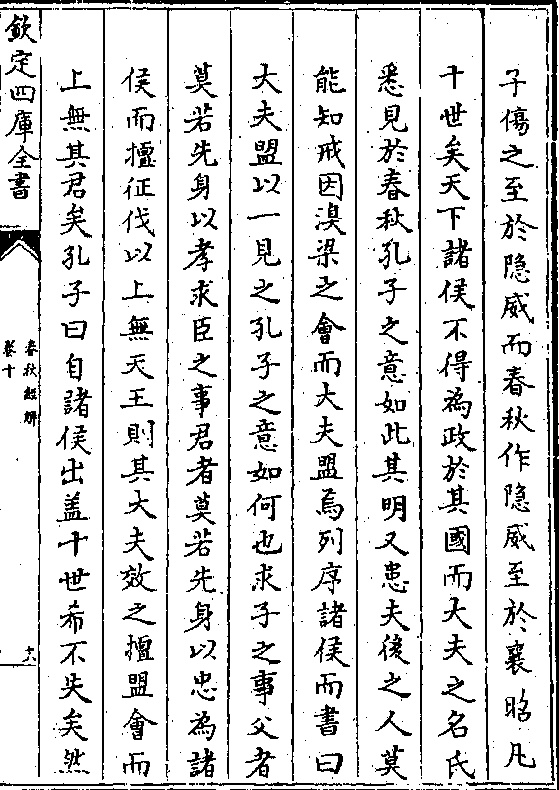 子傷之至於隐威而春秋作隐威至於襄昭凡
十世矣天下諸侯不得為政於其國而大夫之名氏
悉見於春秋孔子之意如此其明又患夫後之人莫
能知戒因溴梁之會而大夫盟焉列序諸侯而書曰
大夫盟以一見之孔子之意如何也求子之事父者
莫若先身以孝求臣之事君者莫若先身以忠為諸
侯而擅征伐以上無天王則其大夫效之擅盟會而
上無其君矣孔子曰自諸侯出盖十世希不失矣然
欽定四庫全書
春秋經解
卷十
十六